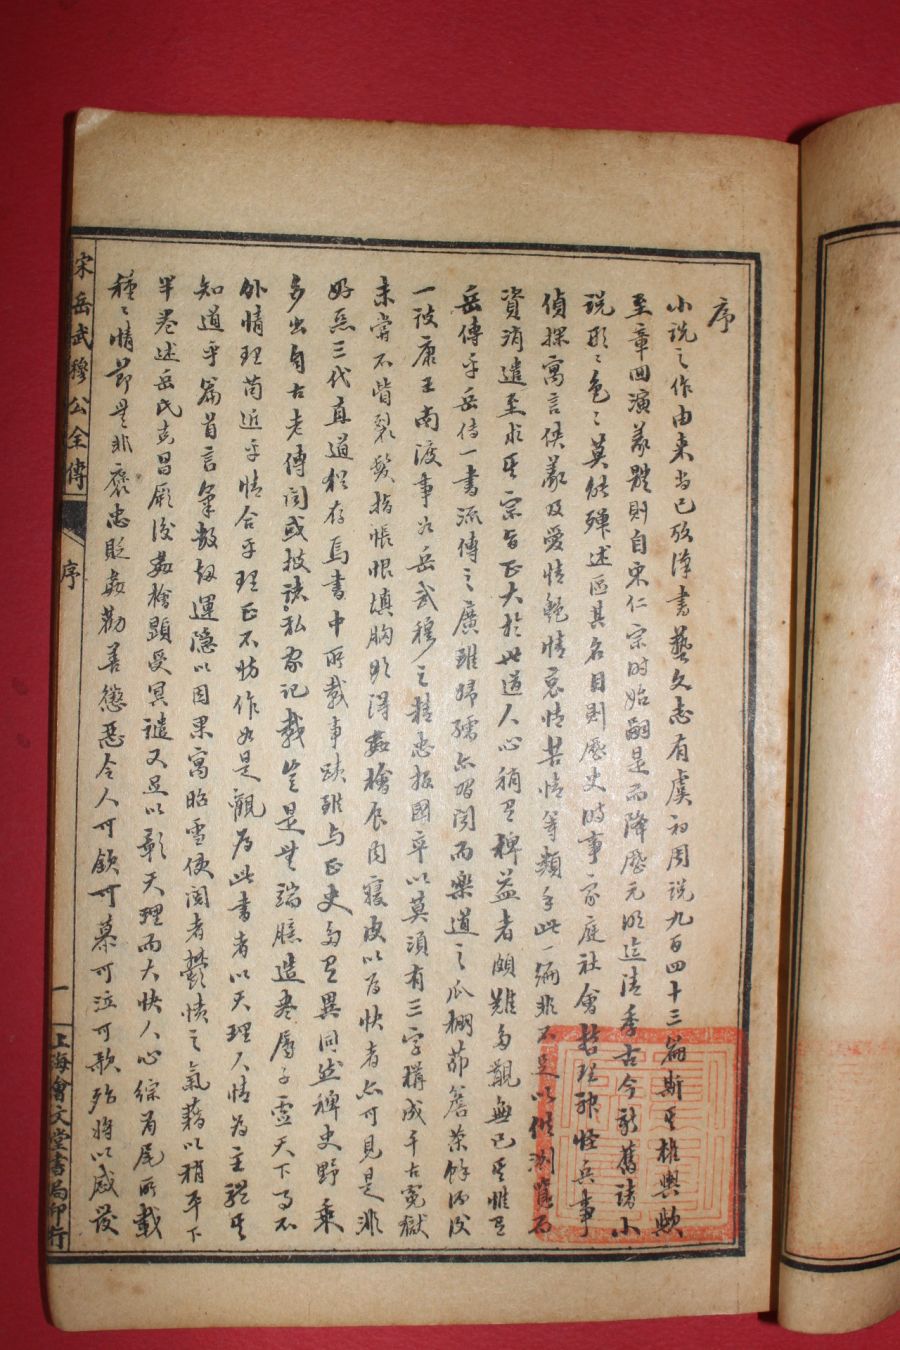 序
小說之作由來尚已攷漢書藝文志有虞初周說九百四十三篇斯其權輿歟
至章回演義體則自宋仁宗時始嗣是而降歷元明迄清季古今新舊諸小
說形〻色〻莫能殫述區其名目則歷史時事家庭社會哲理神怪兵事
偵探寓言俠義及愛情艷情哀情苦情等類手此一編非不足以供消
資消遣至求其宗旨正大於世道人心稍有裨益者頗難多覯無已其惟有
岳傳乎岳傳一書流傳之廣雖婦孺亦習聞而樂道之瓜棚茆簷茶餘酒後
一談康王南渡事如岳武穆之精忠報國卒以莫須有三字搆成千古冤獄
未嘗不眥裂髮指悵恨填胸形得姦檜食肉寢皮以為快者亦可見是非
好惡三代直道猶存焉書中所載事蹟雖與正史多有異同然稗史野乘
多出自古老傳聞或披諸私家記載豈是無端臆造盡屬子虛天下事不
外情理苟近乎情合乎理正不妨作如是觀為此書者以天理人情為主體其
知道乎篇首言氣數劫運隱以因果寓昭雪使閱者鬱憤之氣藉以稍平下
半卷述岳氏克昌厥後姦檜顯受冥譴又足以彰天理而大快人心綜首尾所載
種〻情節無非褒忠貶姦勸善懲惡令人可欽可慕可泣可歌殆將以感發
宋岳武穆公全傳
序
一
上海會文堂書局印行